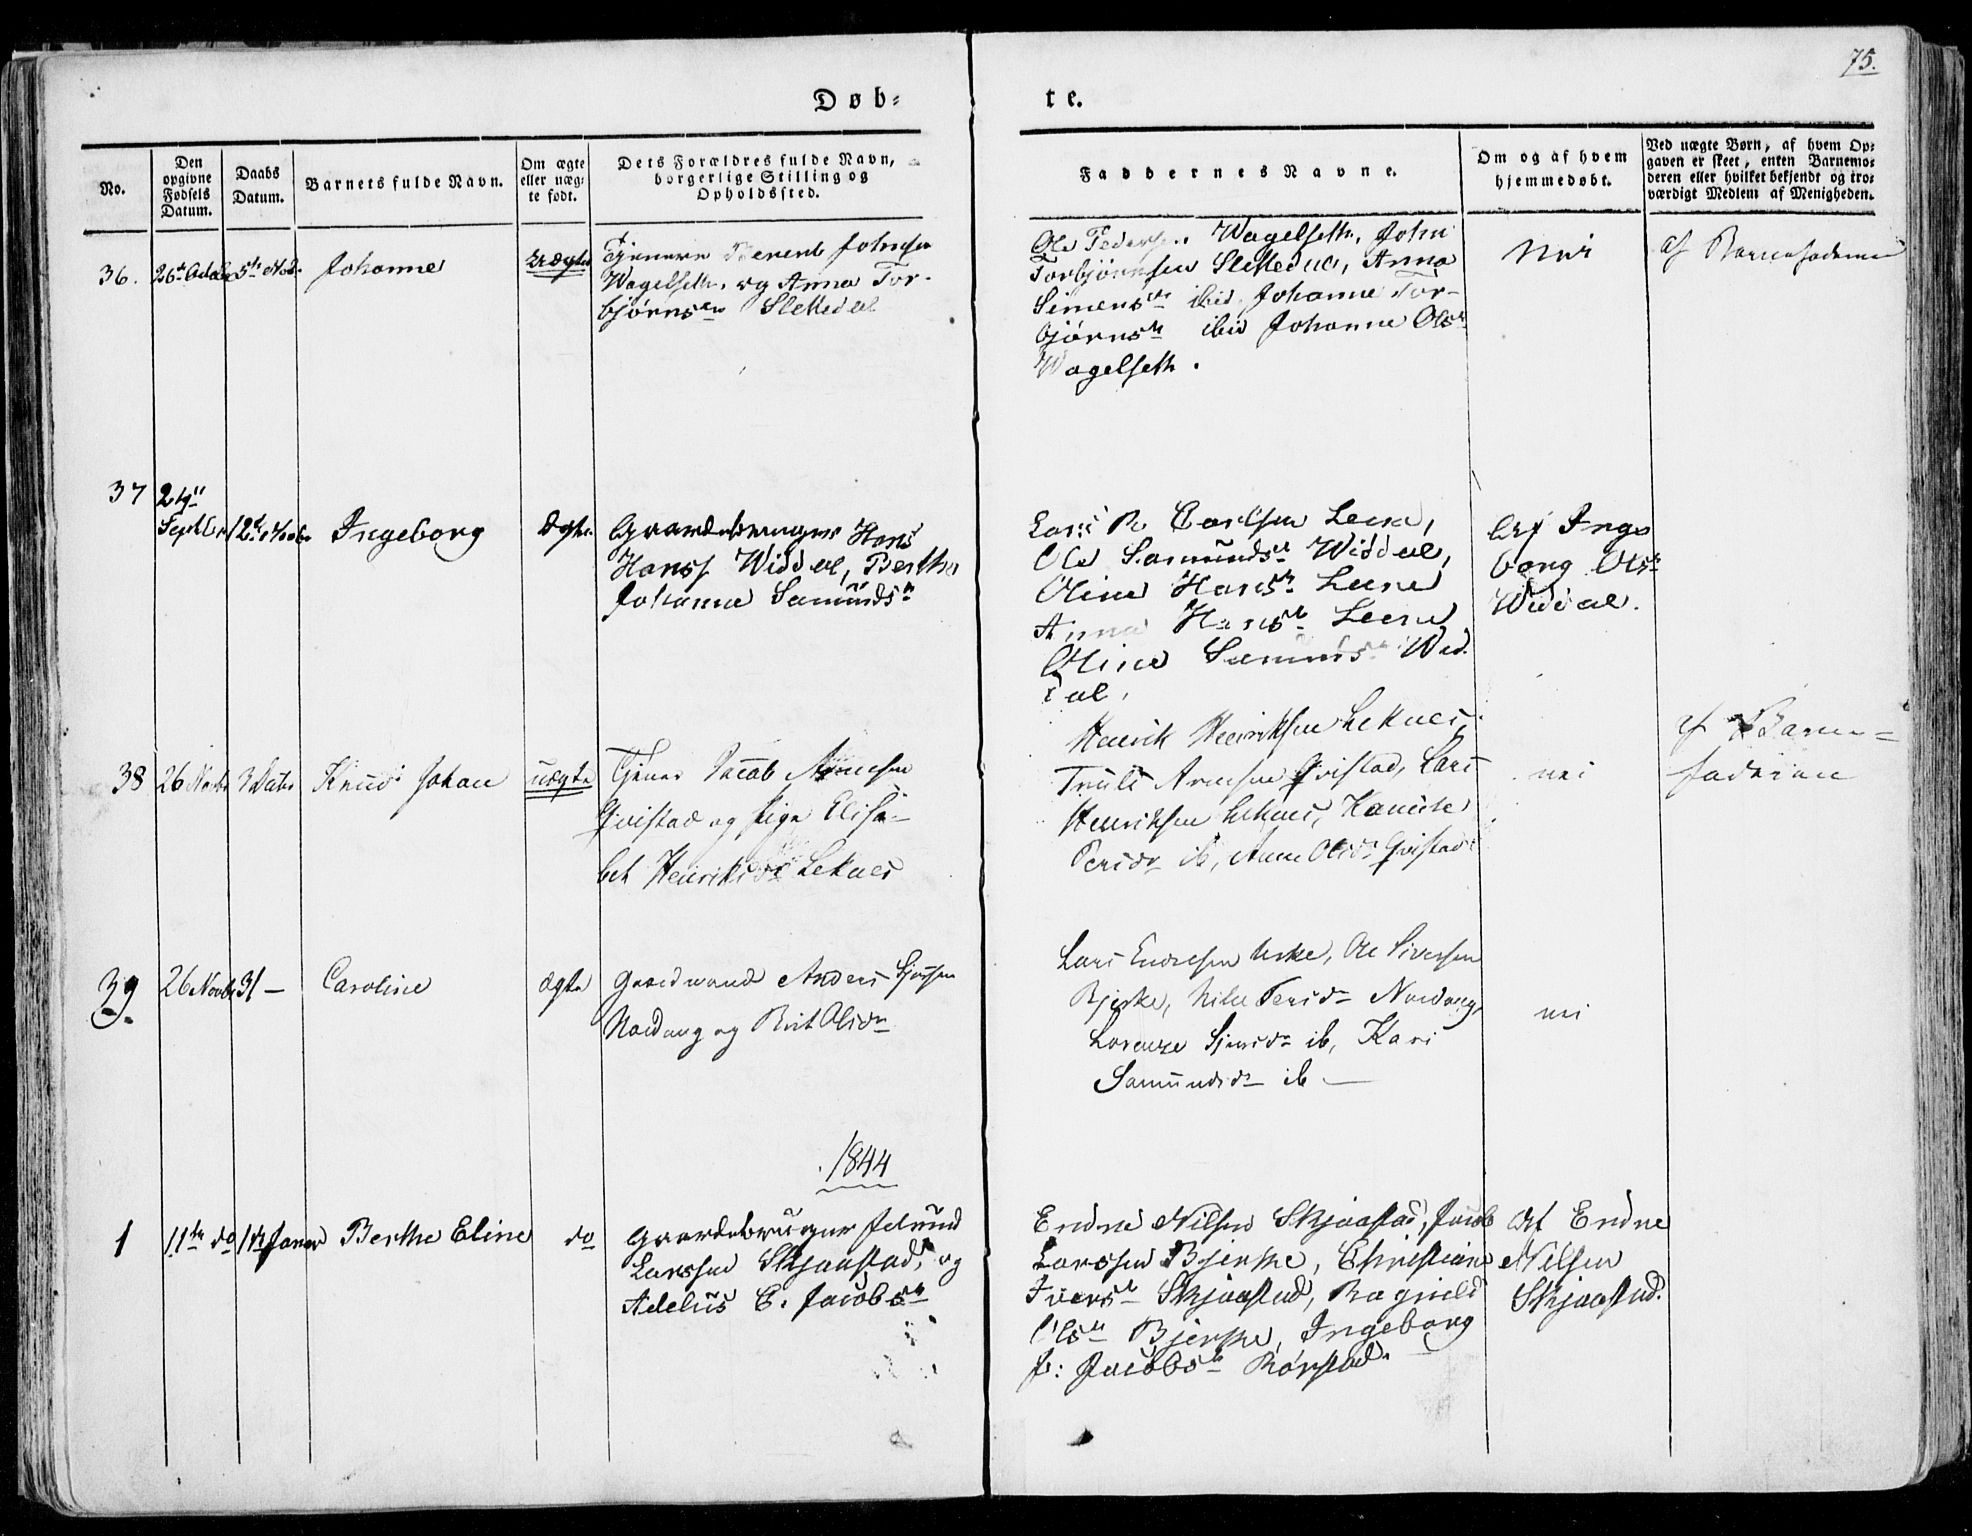 75.
Døb=
te.
No.
Den opgivne Fødsels Datum.
Daabs Datum.
Barnets fulde Navn.
Om ægte eller uægte født.
Dets Forældres fulde Navn, borgerlige Stilling og Opholdssted.
Faddernes Navne.
Om og af hvem hjemmedøbt.
Ved uægte Børn, af hvem Opgaven er skeet, enten Barnemoderen eller hvilket bekjendt og troværdigt Medlem af Menigheden.
36.
5te
Johanne
uægte
Tjenere Berent Johnsen
Wagelseth. og Anna Tor-
bjørnsdr Slettedal
Ole Pedersen Wagelseth, John
Torbjørnsen Slettedal, Anna
Simensdr ibid, Johanne Tor-
bjørnsdr ibid Johanne Olsdr
Wagelseth.
Nei
af Barnefaderen
37
Septbr
Ingeborg
Ægte
Gaardebruger Hans
Hanss Widdal, Berthe
Johanna Samundsdr
Lars Carlsen Leere,
Ole Samundss Widdal,
Oline Hansdr Leere
Anna Hansdr Leere
Oline Samundsdr Wid-
dal.
Af Inge
borg Olsdr
Widdal.
38
26 Novbr
Knud Johan
uægte
Tjener Jacob Arnesen
Qvistad og Pige Elisa-
bet Henriksdr Leknes
Henrik Henriksen Leknes,
Truls Arnesen Qvistad, Lars
Henriksen Leknes,
Persdr ib, Anne Olsdr Qvistad
nei
af Barne=
faderen
39
26 Novbr
31 —
Caroline
ægte
Gaardmand Anders
Nordang og Brit Olsdr
Lars Endresen Urke, Ole Siversen
Bjerke, Persdr Nordang,
ib, Kari
Samundsdr ib —
nei
1844
1
11te do
Janar
Berthe Eline
do
Gaardebruger
Larssen Skjaastad, og
E. Jacobsdr
Endre Nilsen Skjaastad, Jacob
Larssen Bjerke, Christiane
Iversdr Skjaastad, Ragnild
Olsdr Bjerke, Ingeborg
Jacobsdr Rørstad.
Af Endre
Nilsen
Skjaastad.